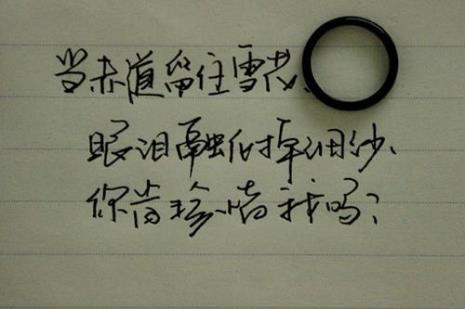 当赤道留住雪花、
眼泪融化掉细沙、
你肯珍惜我吗?